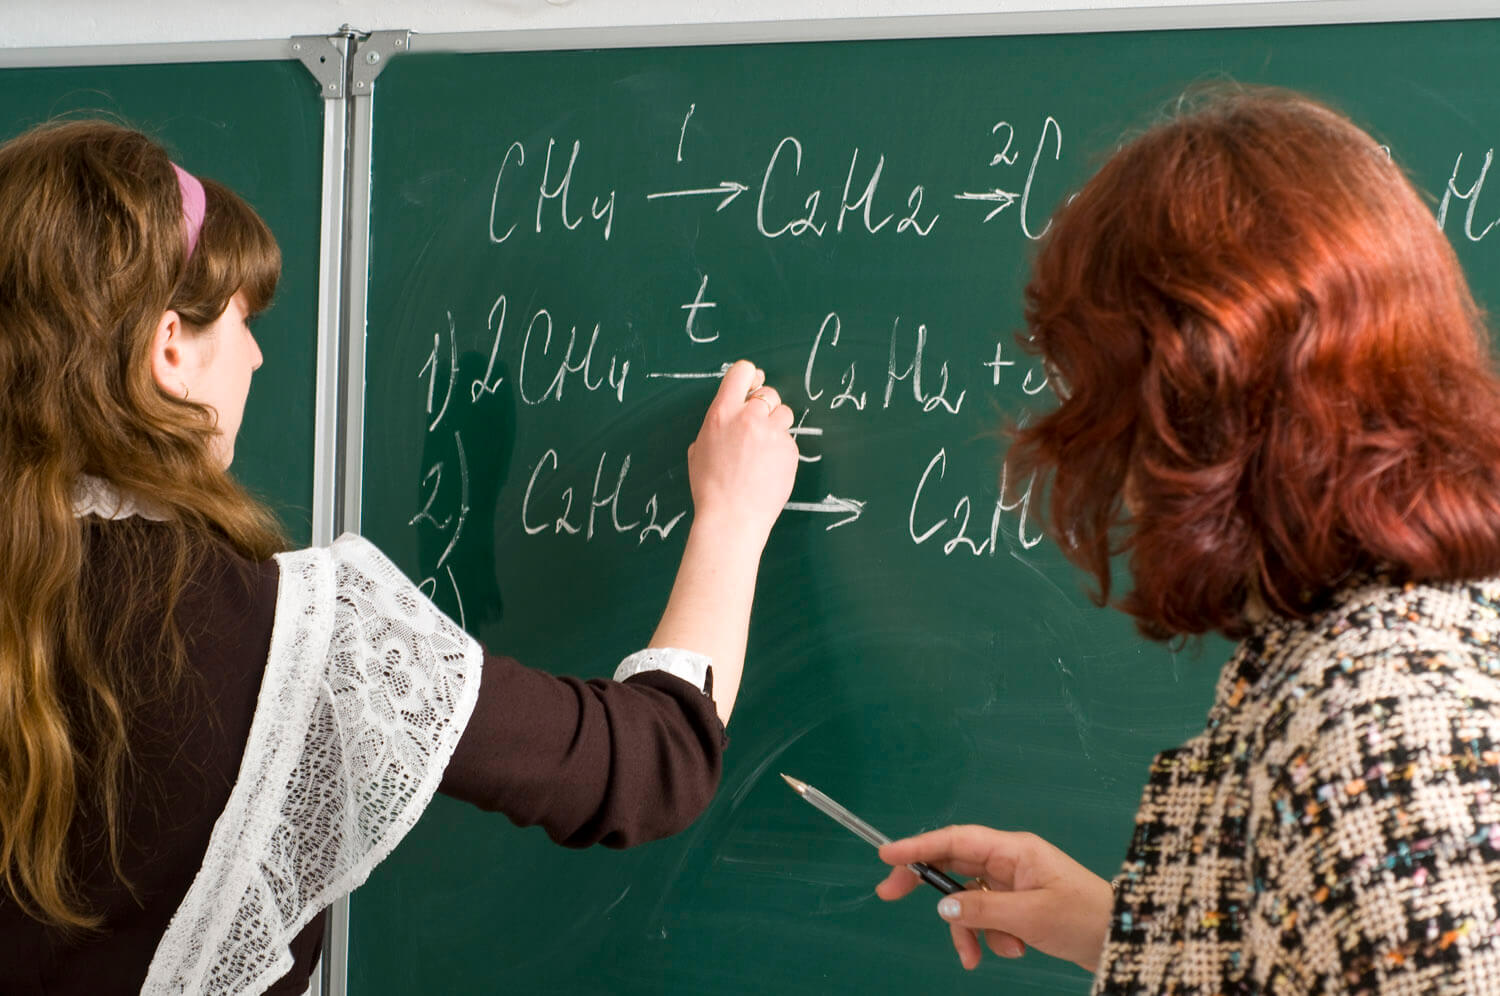 CH4 1→ C2H2 2→ C H
1) 2CH4 t→ C2H2 +
2) C2H2 t→ C2H
3)